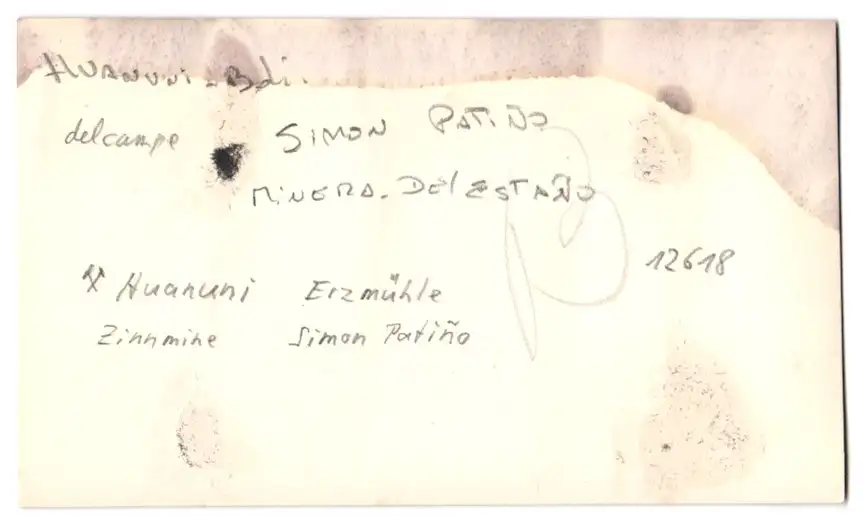 HUANUNI - Boli.
delcampe
SIMON PATIÑO
MINERA. DEL ESTAÑO
12618
Huanuni Erzmühle
Zinnmine Simon Patiño